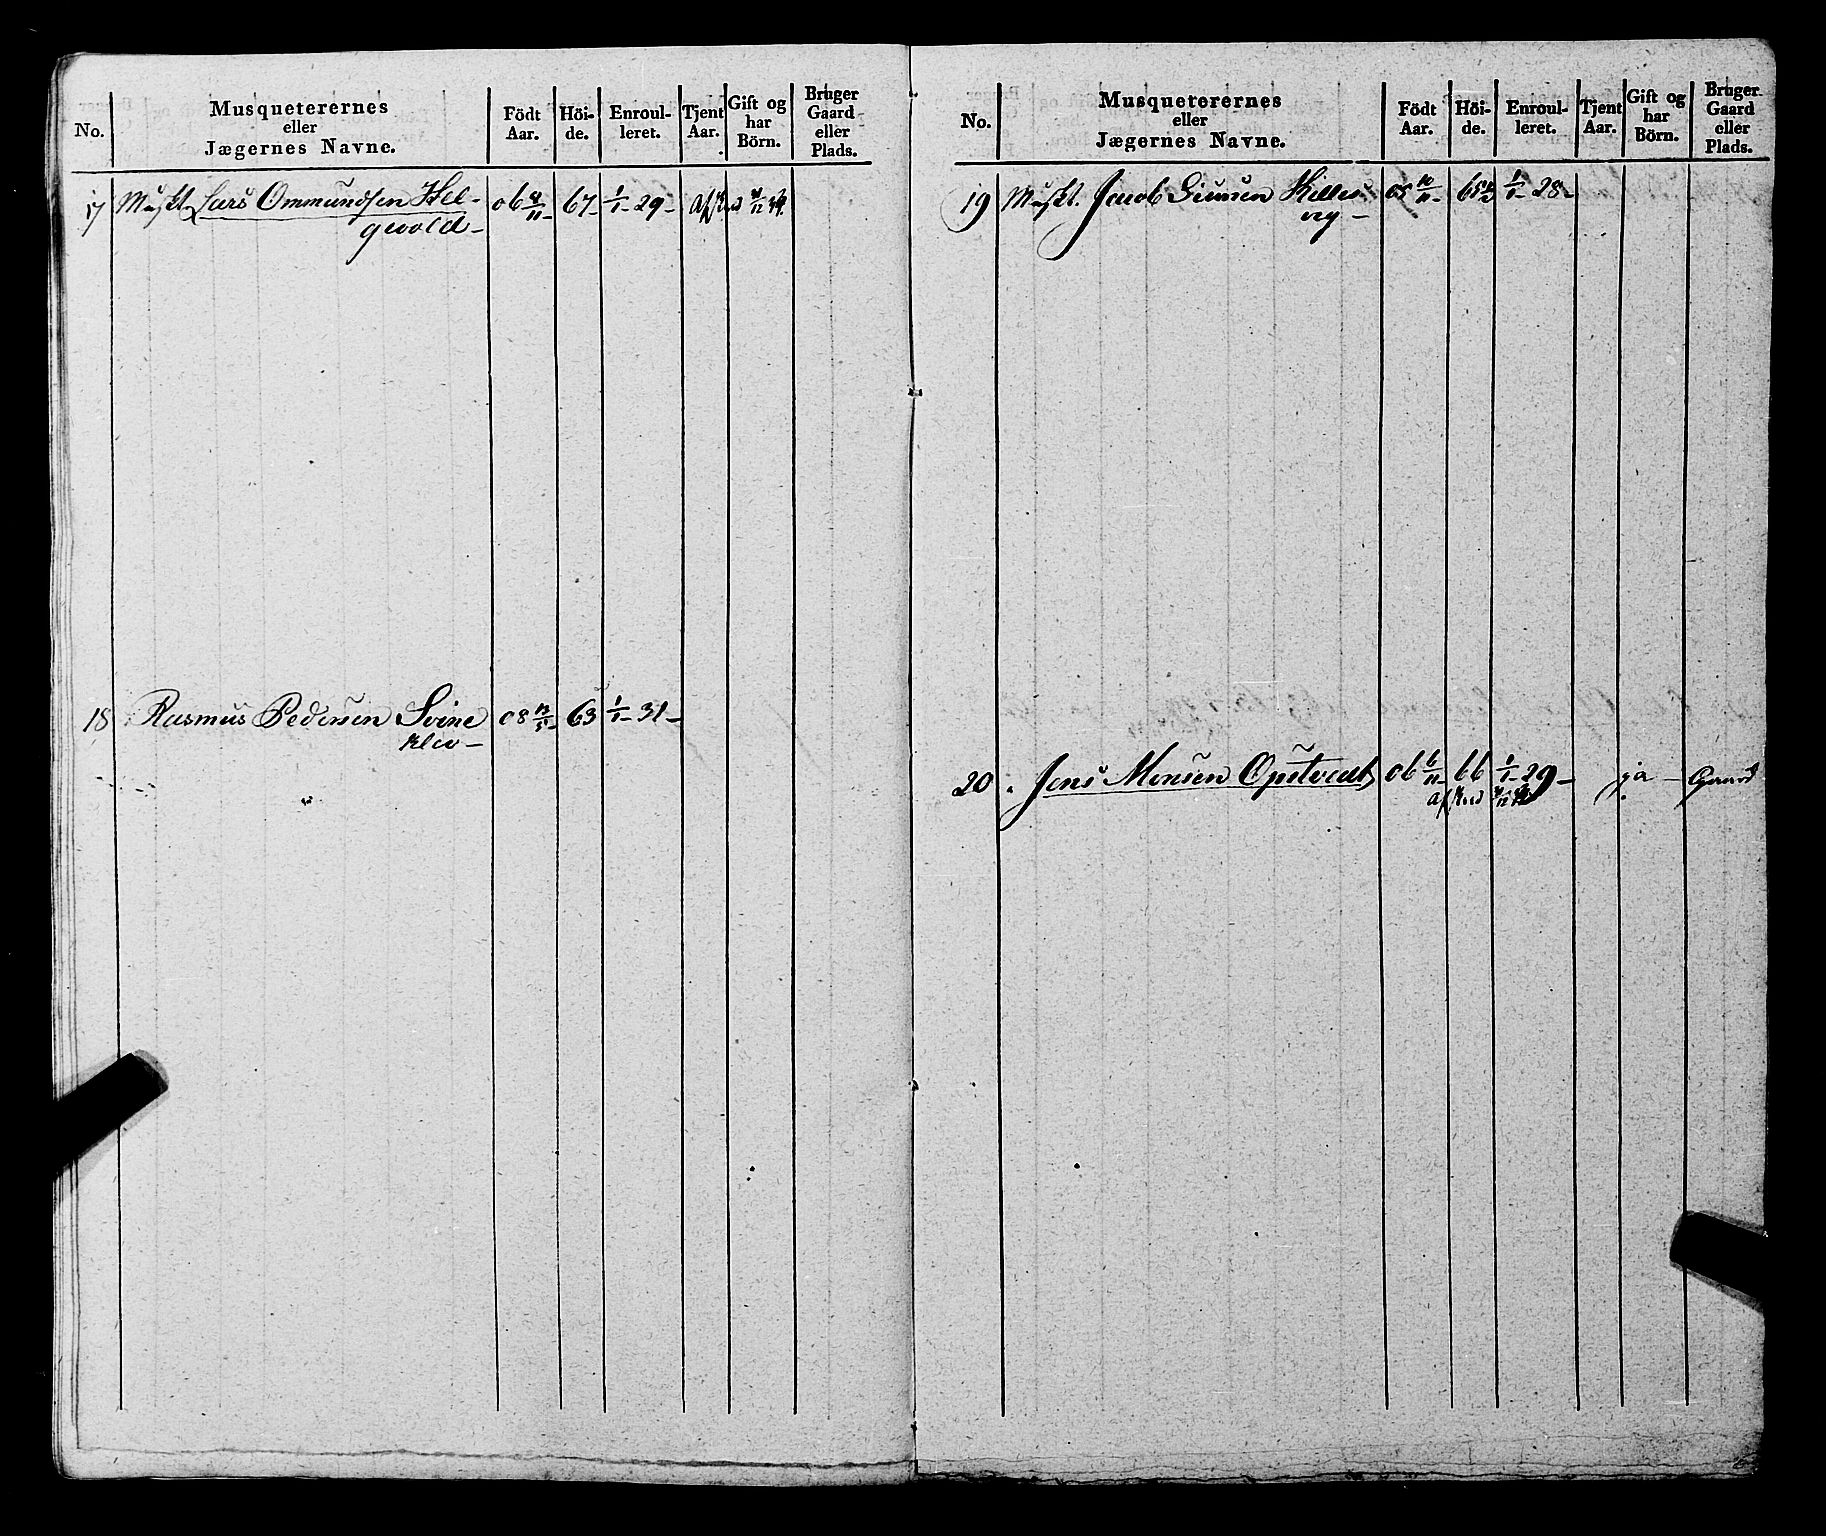 No. Musqueterernes eller Jægernes Navne. Födt Aar. Höi-de. Enroul-leret. Tjent Aar. Gift og har Börn. Bruger Gaard eller Plads.
17 Muskt. Lars Ommundsen Hel- 06 67- 1/1- 29- Afsked
gevold-
18 Rasmus Pedersen Svine 08 63 1/1- 31-
klev-
No. Musqueterernes eller Jægernes Navne. Födt Aar. Höi-de. Enroul-leret. Tjent Aar. Gift og har Börn. Bruger Gaard eller Plads.
19 Muskt. Jacob Simsen 05 10/11- 65 1/1- 28-
vig-
20 " Jens Monsen Opstvedt 06 6/11- 66 1/1- 29- ja- Gaard
afsked